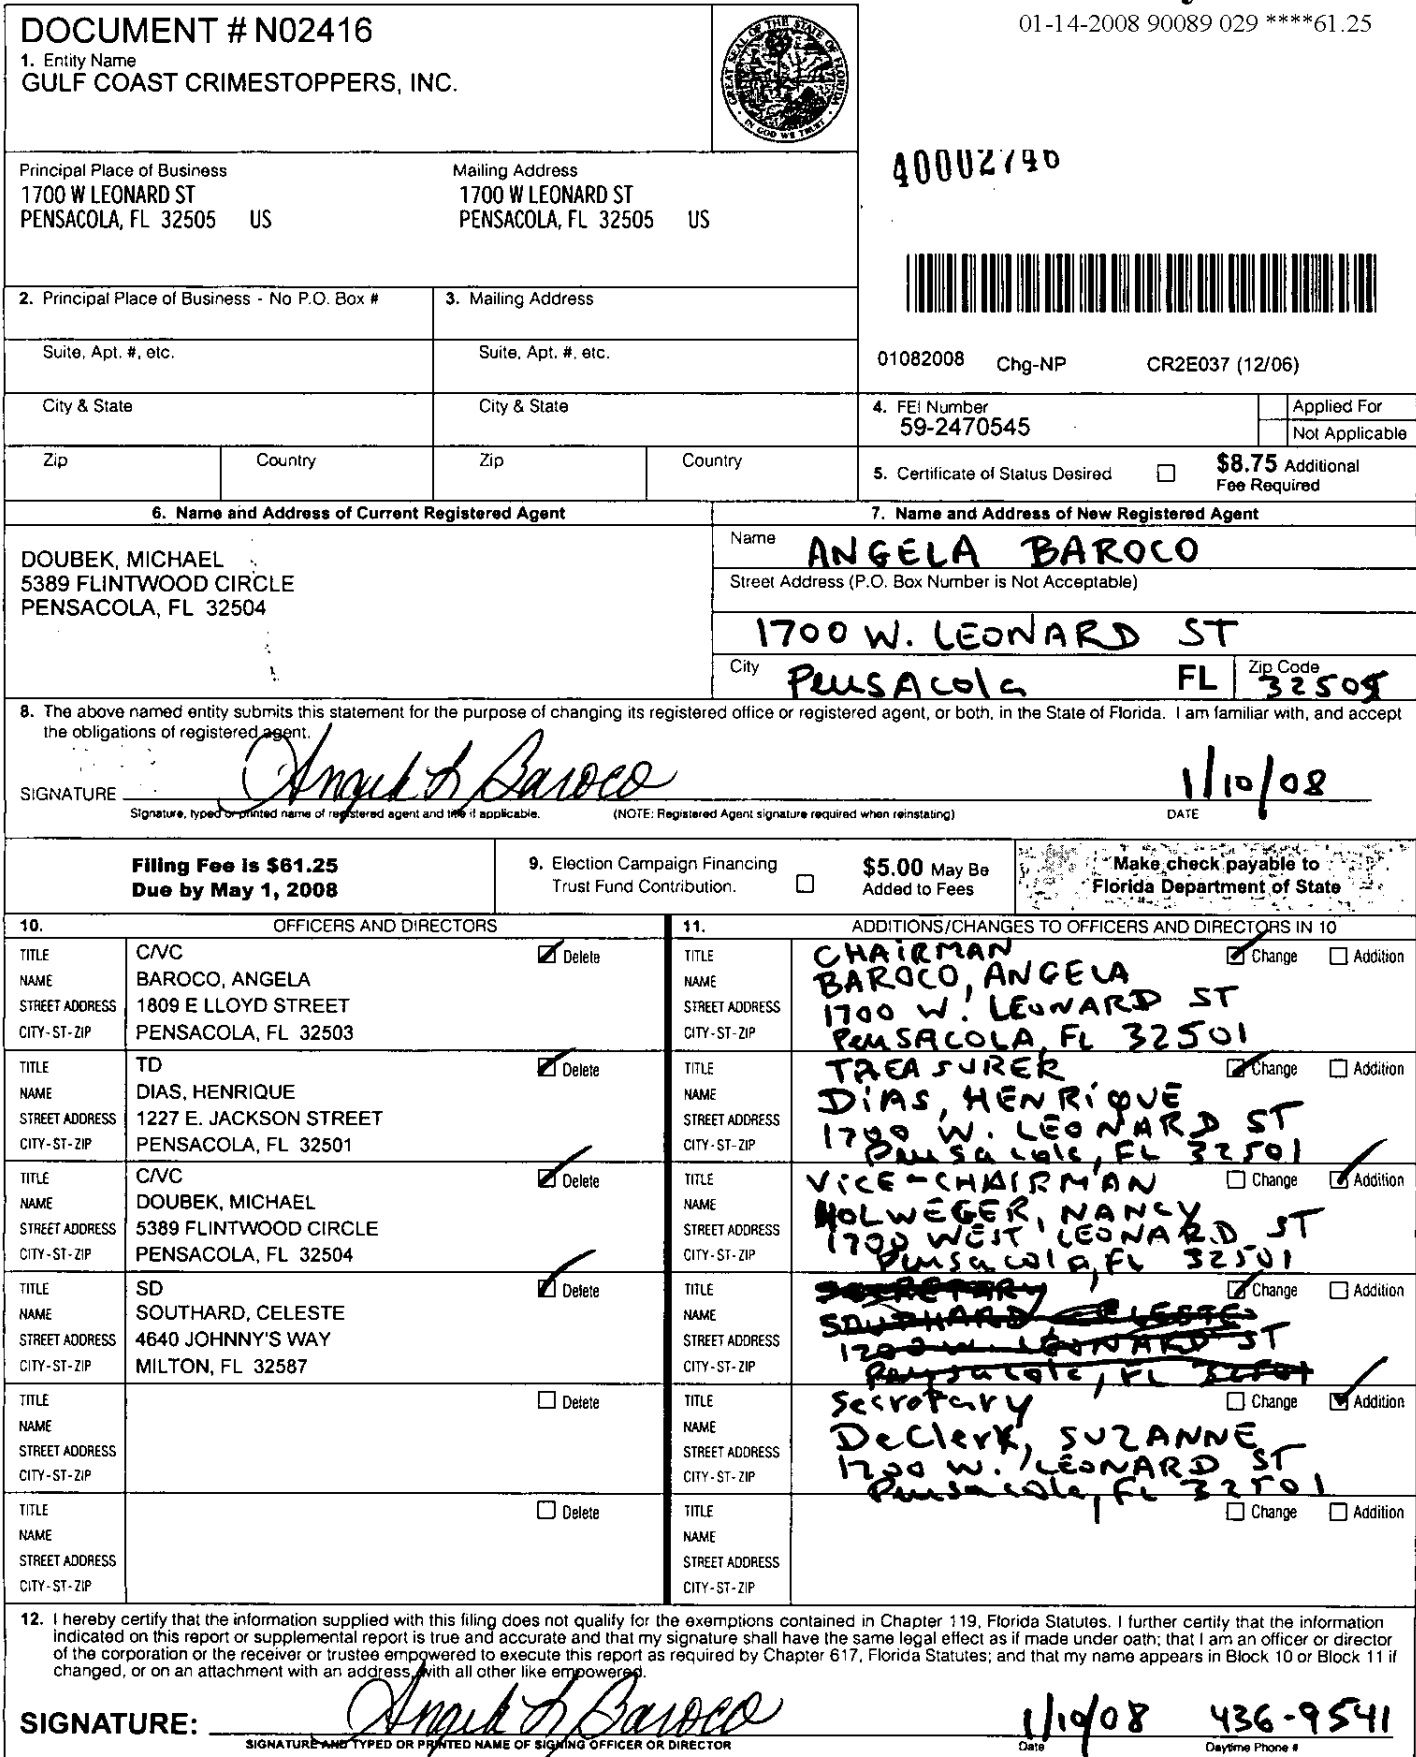 01-14-2008 90089 029 ****61.25
DOCUMENT # N02416
1. Entity Name
GULF COAST CRIMESTOPPERS, INC.
GREAT SEAL OF THE STATE OF FLORIDA
IN GOD WE TRUST
40002746
Principal Place of Business
1700 W LEONARD ST
PENSACOLA, FL 32505 US
Mailing Address
1700 W LEONARD ST
PENSACOLA, FL 32505 US
2. Principal Place of Business - No P.O. Box #
3. Mailing Address
Suite, Apt. #, etc.
Suite, Apt. #, etc.
01082008 Chg-NP CR2E037 (12/06)
City & State
City & State
4. FEI Number
59-2470545
Applied For
Not Applicable
Zip Country
Zip Country
5. Certificate of Status Desired
$8.75 Additional
Fee Required
6. Name and Address of Current Registered Agent
DOUBEK, MICHAEL
5389 FLINTWOOD CIRCLE
PENSACOLA, FL 32504
7. Name and Address of New Registered Agent
Name ANGELA BAROCO
Street Address (P.O. Box Number is Not Acceptable)
1700 W. LEONARD ST
City Pensacola FL Zip Code 32505
8. The above named entity submits this statement for the purpose of changing its registered office or registered agent, or both, in the State of Florida. I am familiar with, and accept
the obligations of registered agent.
SIGNATURE Angela L Baroco 1/10/08
Signature, typed or printed name of registered agent and title if applicable. (NOTE: Registered Agent signature required when reinstating) DATE
Filing Fee is $61.25
Due by May 1, 2008
9. Election Campaign Financing
Trust Fund Contribution.
$5.00 May Be
Added to Fees
Make check payable to
Florida Department of State
10. OFFICERS AND DIRECTORS
TITLE C/VC Delete
NAME BAROCO, ANGELA
STREET ADDRESS 1809 E LLOYD STREET
CITY-ST-ZIP PENSACOLA, FL 32503
TITLE TD Delete
NAME DIAS, HENRIQUE
STREET ADDRESS 1227 E. JACKSON STREET
CITY-ST-ZIP PENSACOLA, FL 32501
TITLE C/VC Delete
NAME DOUBEK, MICHAEL
STREET ADDRESS 5389 FLINTWOOD CIRCLE
CITY-ST-ZIP PENSACOLA, FL 32504
TITLE SD Delete
NAME SOUTHARD, CELESTE
STREET ADDRESS 4640 JOHNNY'S WAY
CITY-ST-ZIP MILTON, FL 32587
TITLE Delete
NAME
STREET ADDRESS
CITY-ST-ZIP
TITLE Delete
NAME
STREET ADDRESS
CITY-ST-ZIP
11. ADDITIONS/CHANGES TO OFFICERS AND DIRECTORS IN 10
TITLE CHAIRMAN Change Addition
NAME BAROCO, ANGELA
STREET ADDRESS 1700 W. LEONARD ST
CITY-ST-ZIP PENSACOLA, FL 32501
TITLE TREASURER Change Addition
NAME DIAS, HENRIQUE
STREET ADDRESS 1700 W. LEONARD ST
CITY-ST-ZIP Pensacola, FL 32501
TITLE VICE-CHAIRMAN Change Addition
NAME HOLWEGER, NANCY
STREET ADDRESS 1700 WEST LEONARD ST
CITY-ST-ZIP Pensacola, FL 32501
TITLE SECRETARY Change Addition
NAME SOUTHARD CELESTE
STREET ADDRESS 1200 W. LEONARD ST
CITY-ST-ZIP Pensacola, FL 32501
TITLE Secretary Change Addition
NAME DeClerk, SUZANNE
STREET ADDRESS 1700 W. LEONARD ST
CITY-ST-ZIP Pensacola, FL 32501
TITLE Change Addition
NAME
STREET ADDRESS
CITY-ST-ZIP
12. I hereby certify that the information supplied with this filing does not qualify for the exemptions contained in Chapter 119, Florida Statutes. I further certify that the information
indicated on this report or supplemental report is true and accurate and that my signature shall have the same legal effect as if made under oath; that I am an officer or director
of the corporation or the receiver or trustee empowered to execute this report as required by Chapter 617, Florida Statutes; and that my name appears in Block 10 or Block 11 if
changed, or on an attachment with an address, with all other like empowered.
SIGNATURE: Angela L Baroco 1/10/08 436-9541
SIGNATURE AND TYPED OR PRINTED NAME OF SIGNING OFFICER OR DIRECTOR Date Daytime Phone #